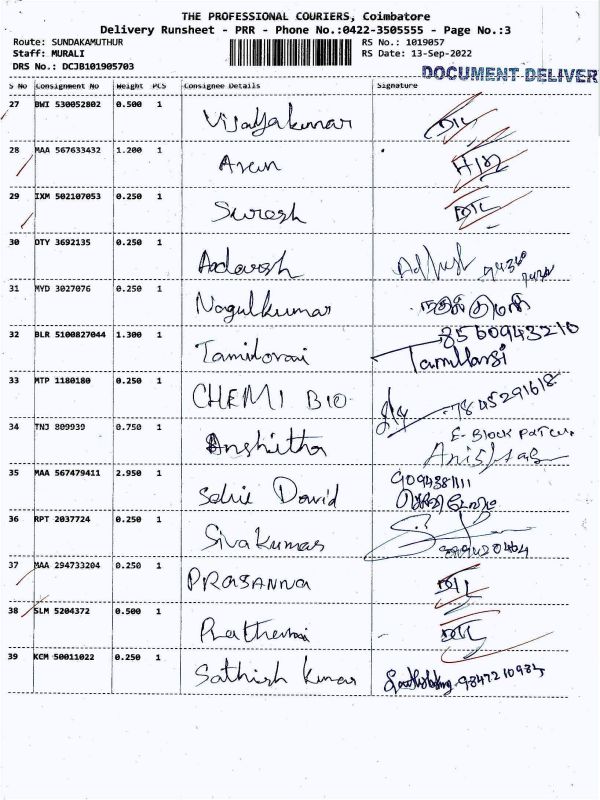 THE PROFESSIONAL COURIERS, Coimbatore
Delivery Runsheet - PRR - Phone No.:0422-3505555 - Page No.:3
Route: SUNDAKAMUTHUR
RS No.: 1019057
Staff: MURALI
RS Date: 13-Sep-2022
DRS No.: DCJB101905703
DOCUMENT DELIVER
S No Consignment No Weight PCS Consignee Details Signature
27 BWI 530052802 0.500 1 Vijayakumar DIL
28 MAA 567633432 1.200 1 Arun
29 IXM 502107053 0.250 1 Suresh DIL
30 DTY 3692135 0.250 1 Aadarsh
31 MYD 3027076 0.250 1 Nagulkumar
32 BLR 5100827044 1.300 1 Tamilarasi 8560943210
Tamilarasi
33 MTP 1180180 0.250 1 CHEMI BIO 7845291618
34 TNJ 809939 0.750 1 Anshitha E-Block
35 MAA 567479411 2.950 1 David 9094381111
36 RPT 2037724 0.250 1 Siva Kumar
37 MAA 294733204 0.250 1 PRASANNA DIL
38 SLM 5204372 0.500 1 DIL
39 KCM 50011022 0.250 1 Sathish Kumar